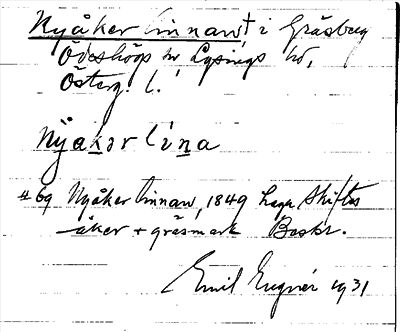 Nyåker linnaw, † i Gräsberg
Ödeshögs sn Lysings hd,
Österg. l.
Nyakər lina
#69 Nyåker linnaw, 1849 Laga Skiftes
åker + gräsmark Beskr.
Emil Eugnér 1931